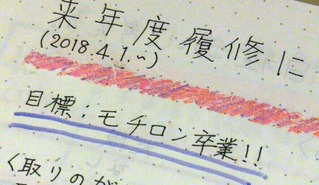 来年度履修に
(2018.4.1.~)
目標;モチロン卒業!!
〈取りのが